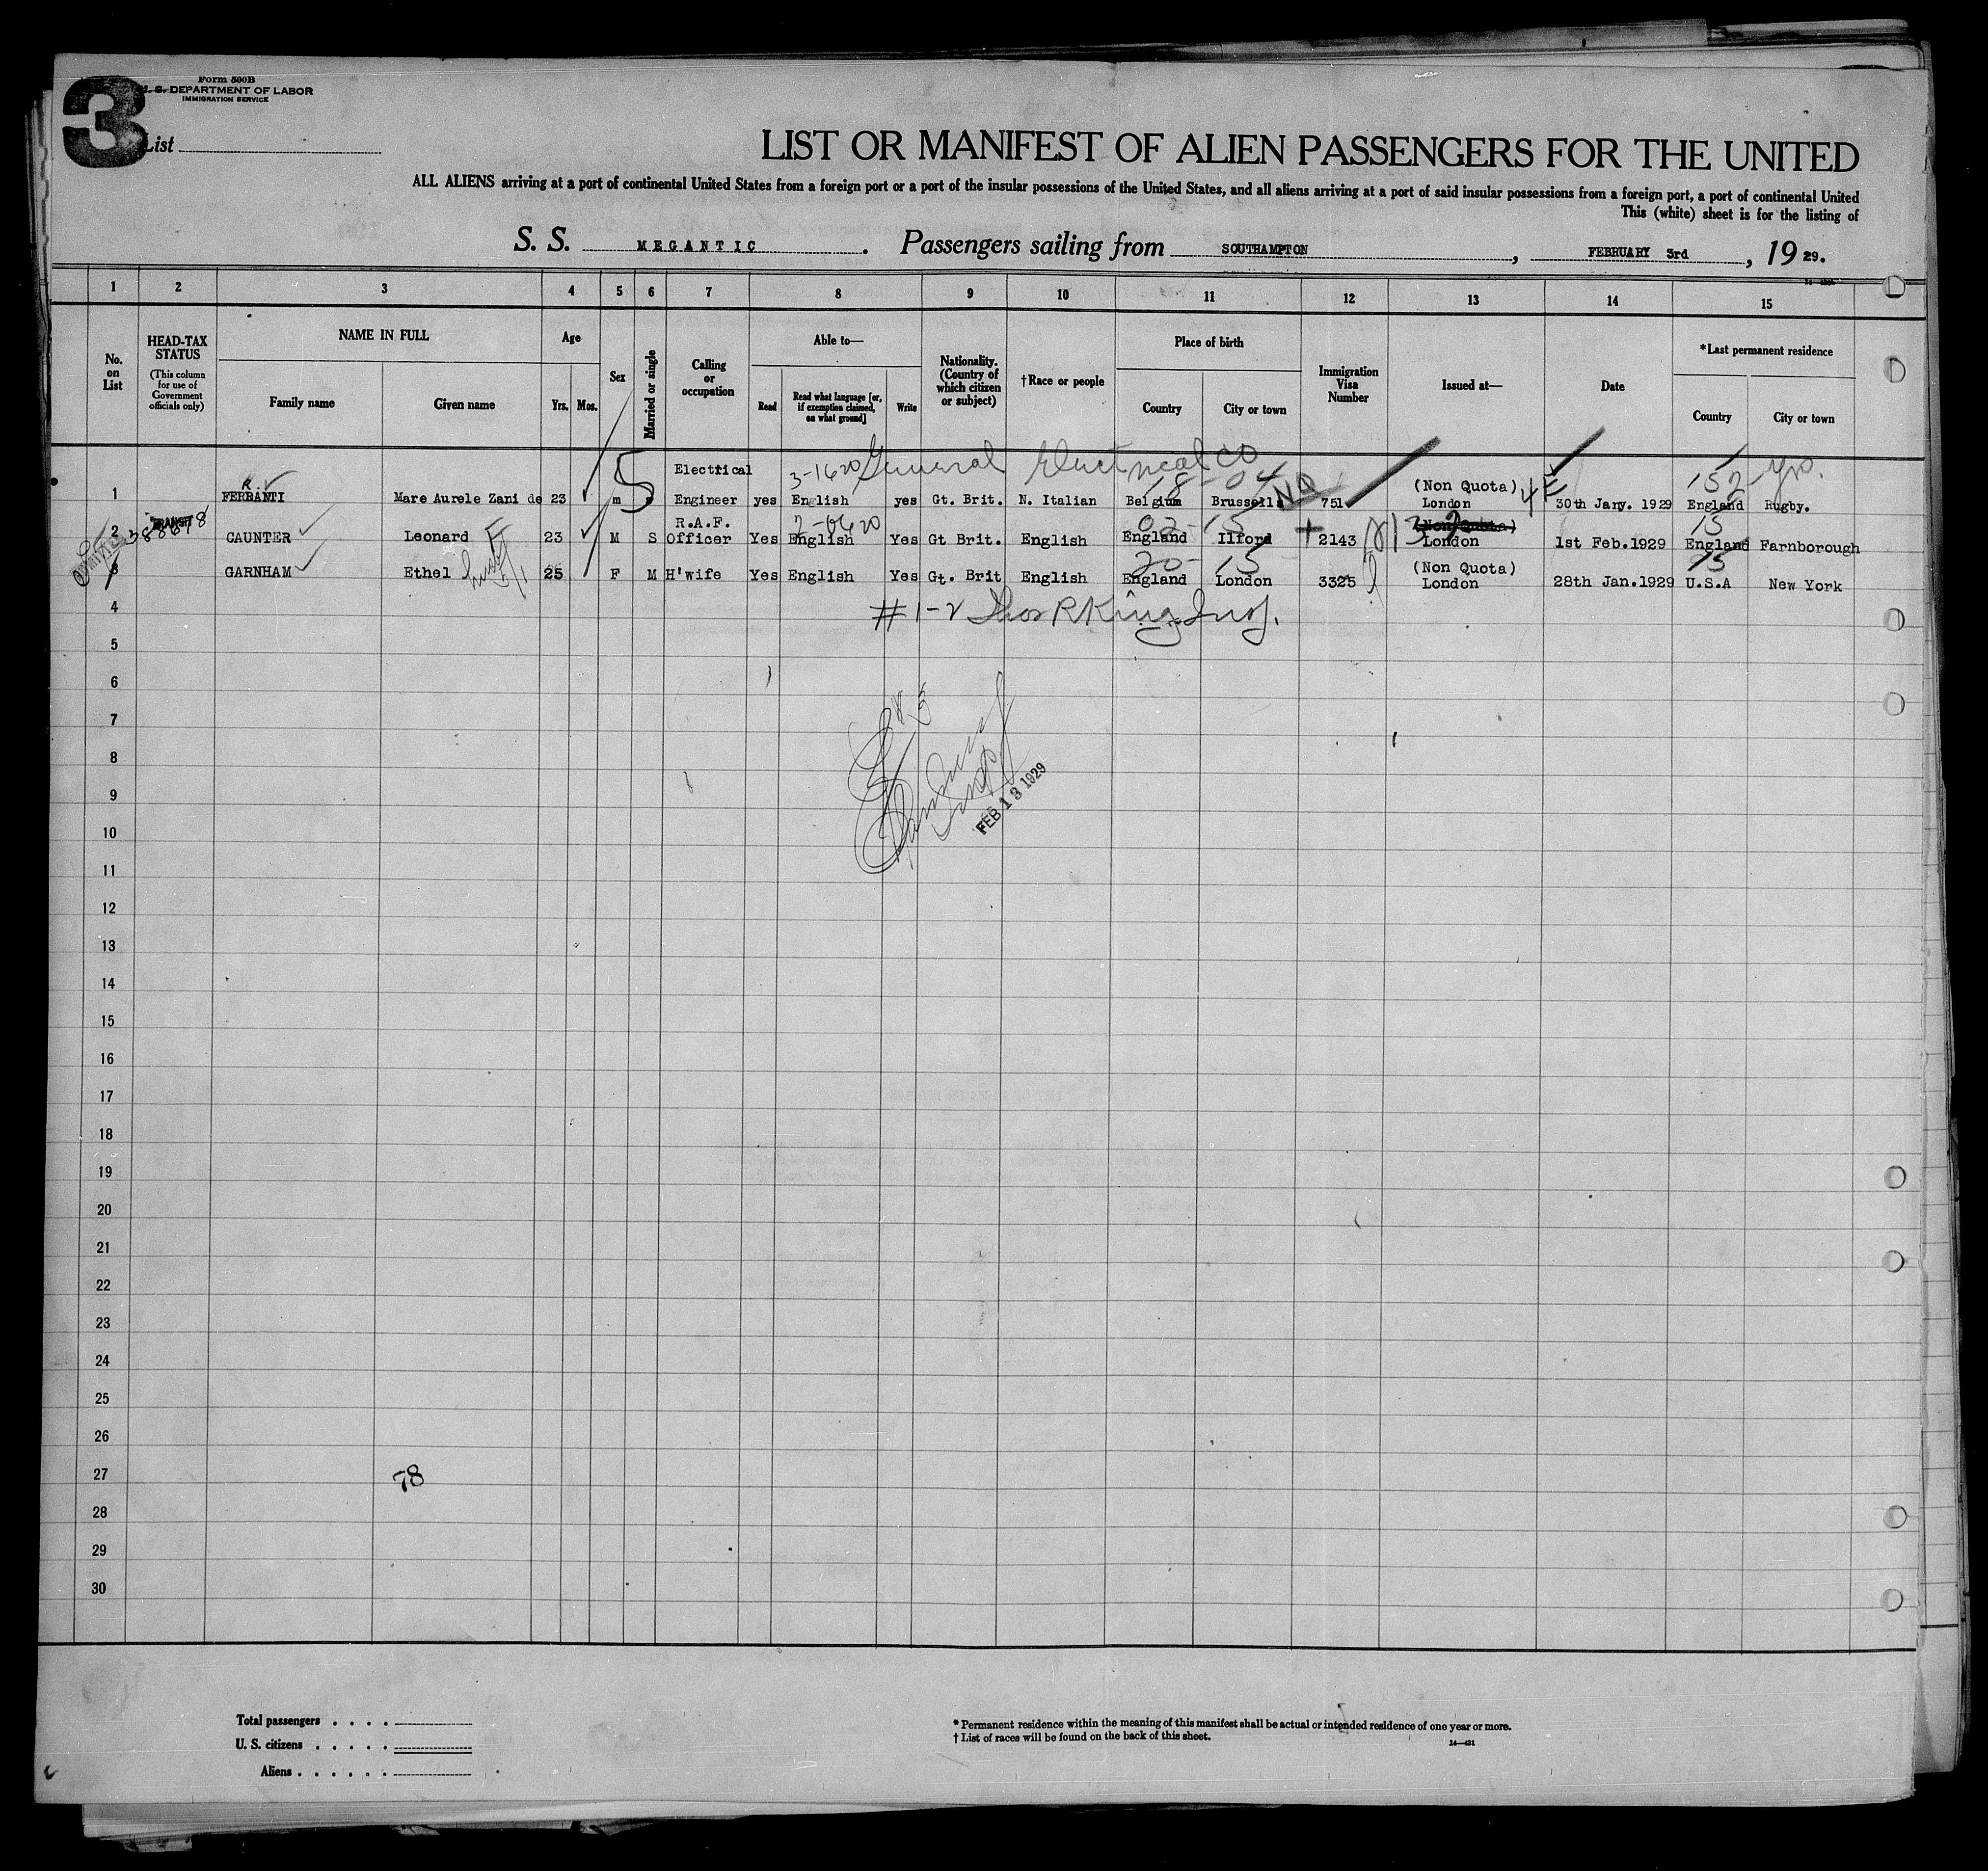 3
Form 500B
U. S. DEPARTMENT OF LABOR
IMMIGRATION SERVICE
List
LIST OR MANIFEST OF ALIEN PASSENGERS FOR THE UNITED
ALL ALIENS arriving at a port of continental United States from a foreign port or a port of the insular possessions of the United States, and all aliens arriving at a port of said insular possessions from a foreign port, a port of continental United
This (white) sheet is for the listing of
S. S. MEGANTIC. Passengers sailing from SOUTHAMPTON, FEBRUARY 3rd, 19 29.
1 2 3 4 5 6 7 8 9 10 11 12 13 14 15
No. on List
HEAD-TAX STATUS
(This column for use of Government officials only)
NAME IN FULL
Family name
Given name
Age
Yrs. Mos.
Sex
Married or single
Calling or occupation
Able to—
Read
Read what language [or, if exemption claimed, on what ground]
Write
Nationality. (Country of which citizen or subject)
†Race or people
Place of birth
Country
City or town
Immigration Visa Number
Issued at—
Date
*Last permanent residence
Country
City or town
3-1620 General Electrical Co 18-04 NQ 15 2 yrs.
R.
1 FERBANTI Mare Aurele Zani de 23 m s Electrical Engineer yes English yes Gt. Brit. N. Italian Belgium Brussells 751 (Non Quota) London 30th Jany. 1929 England Rugby.
TRANSIT 388678
2-0620 02-15 15
2 GAUNTER Leonard F 23 M S R.A.F. Officer Yes English Yes Gt Brit. English England Ilford 2143 (Non Quota) London 1st Feb.1929 England Farnborough
20-15 15
3 GARNHAM Ethel 25 F M H'wife Yes English Yes Gt. Brit English England London 3325 (Non Quota) London 28th Jan.1929 U.S.A New York
4 #1-2 Thos R King Insp.
5
6
7
8
9
FEB 13 1929
10
11
12
13
14
15
16
17
18
19
20
21
22
23
24
25
26
27
78
28
29
30
Total passengers . . . .
U. S. citizens . . . . .
Aliens . . . . . .
* Permanent residence within the meaning of this manifest shall be actual or intended residence of one year or more.
† List of races will be found on the back of this sheet.
14—431